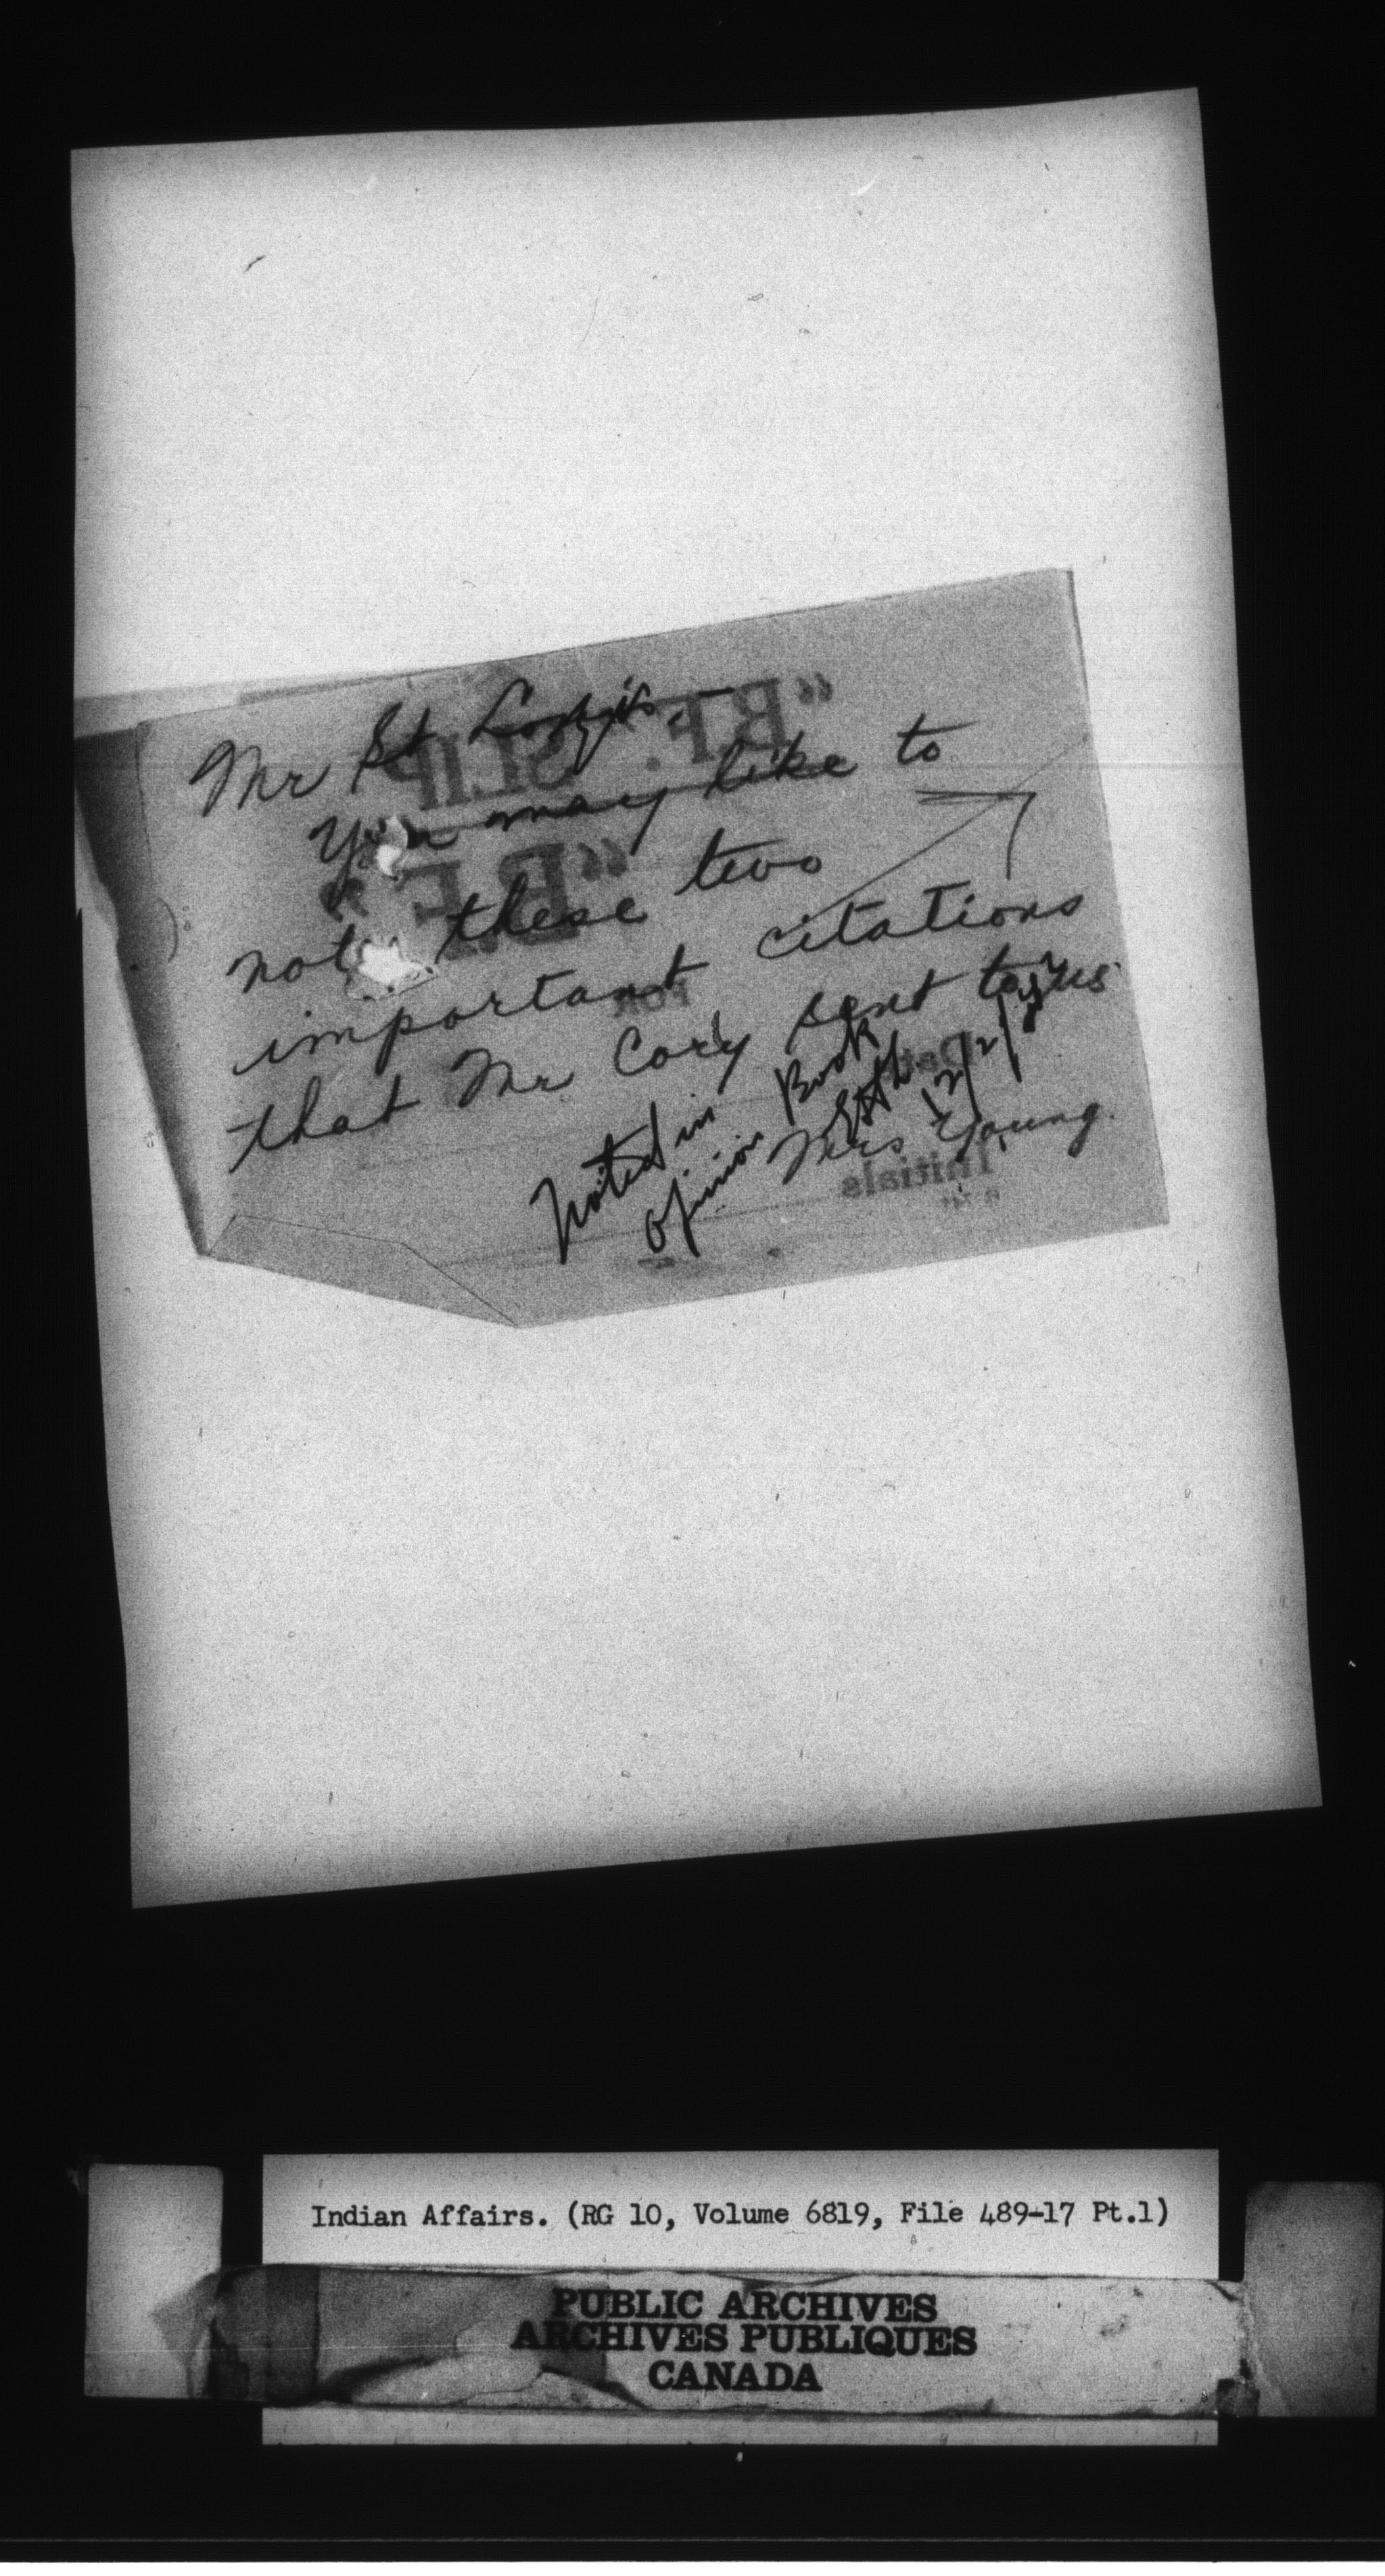 Mr St Louis, —
You may like to
note these two
important citations
that Mr Cory sent to us
Mrs Young.
Noted in
Opinion Book
12/2/
"B.F." SLIP
"B.F."
FOR
Date
Initials
Indian Affairs. (RG 10, Volume 6819, File 489-17 Pt.1)
PUBLIC ARCHIVES
ARCHIVES PUBLIQUES
CANADA